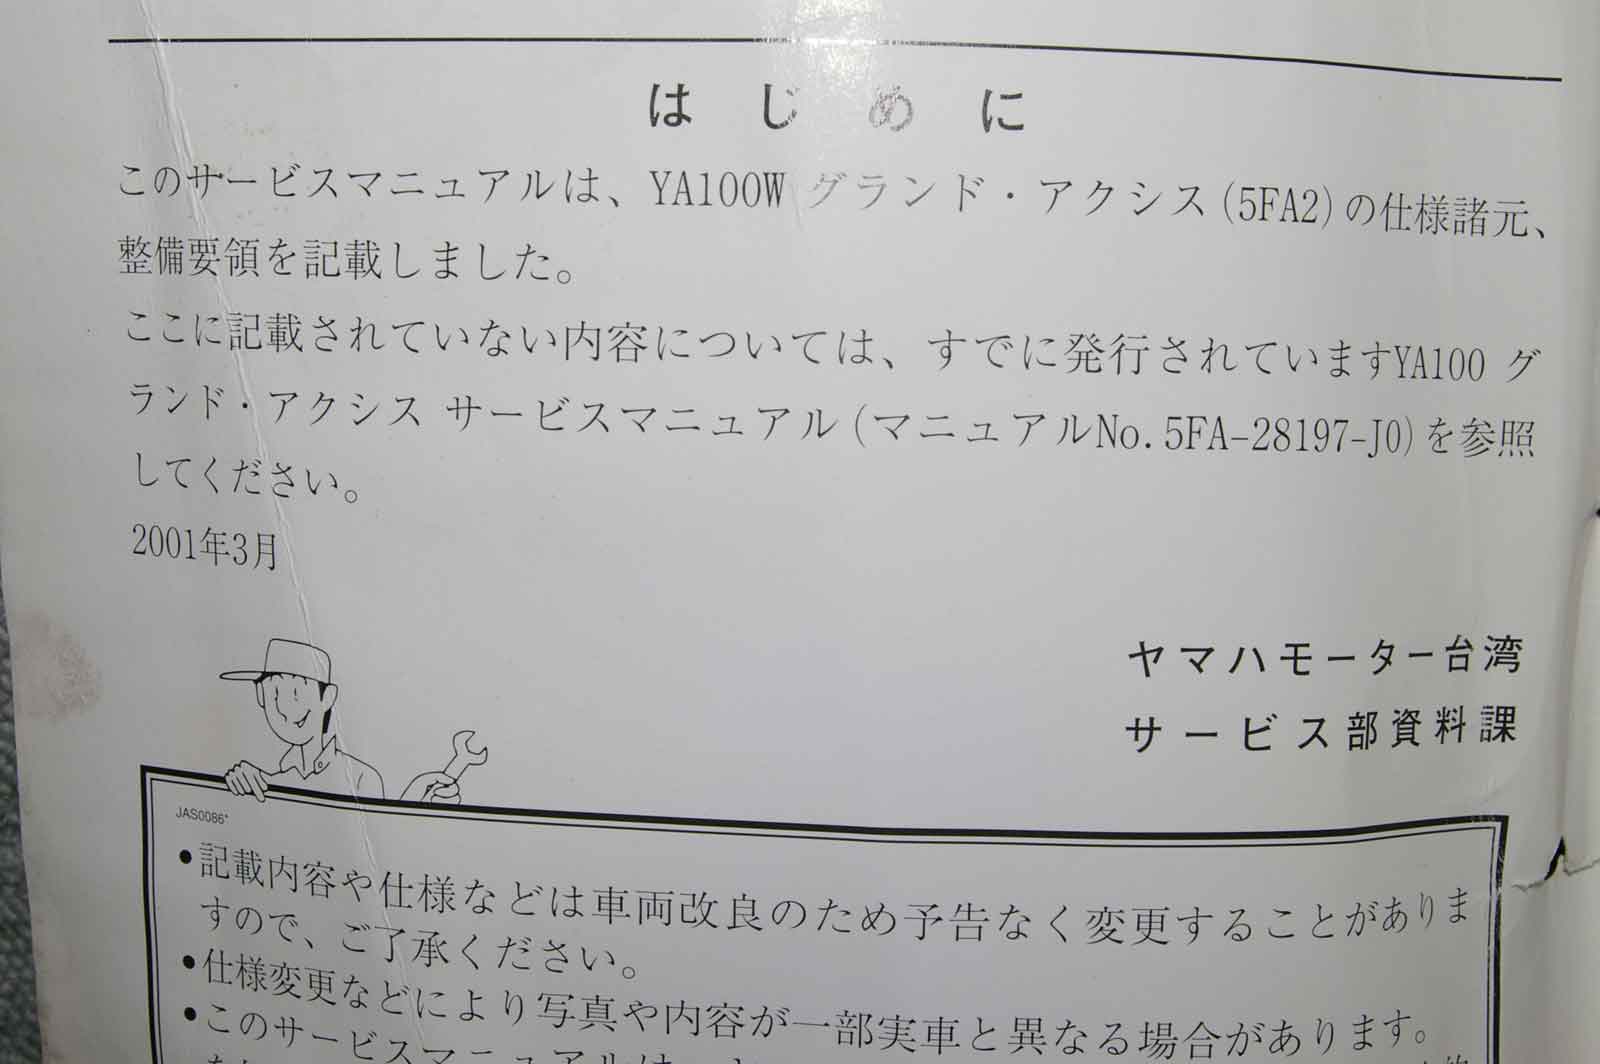 はじめに
このサービスマニュアルは、YA100W グランド・アクシス(5FA2)の仕様諸元、
整備要領を記載しました。
ここに記載されていない内容については、すでに発行されていますYA100 グ
ランド・アクシス サービスマニュアル(マニュアルNo.5FA-28197-J0)を参照
してください。
2001年3月
ヤマハモーター台湾
サービス部資料課
JAS0086*
•記載内容や仕様などは車両改良のため予告なく変更することがありま
すので、ご了承ください。
•仕様変更などにより写真や内容が一部実車と異なる場合があります。
•このサービスマニュアルは